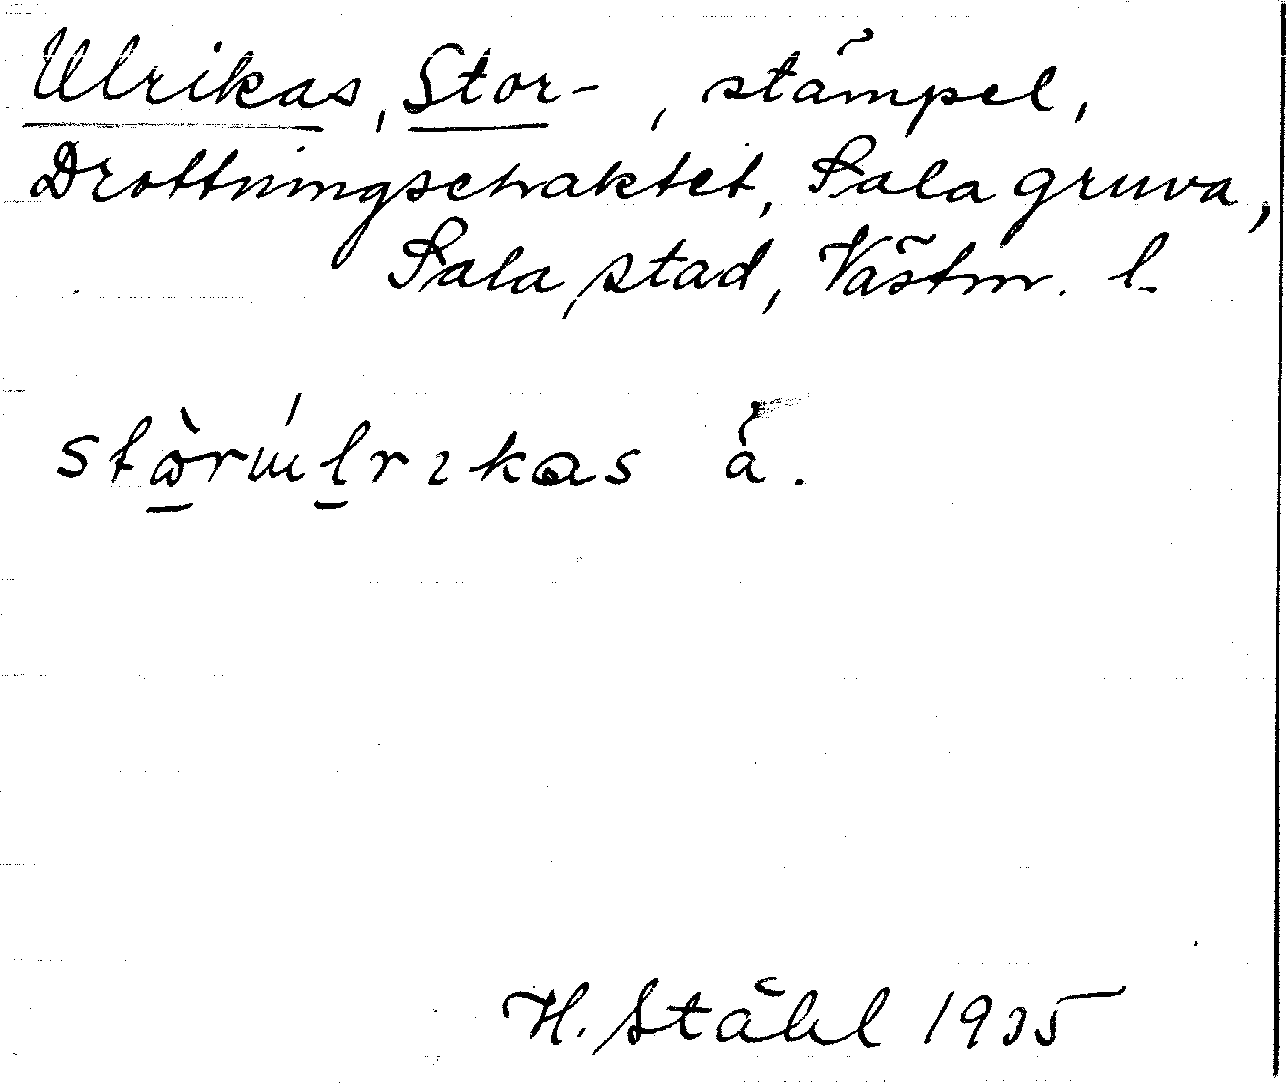 Ulrikas, Stor- , stämpel,
Drottningschaktet, Sala gruva,
Sala stad, Västm. l.
stòrúlrikas å.
H. Ståhl 1935